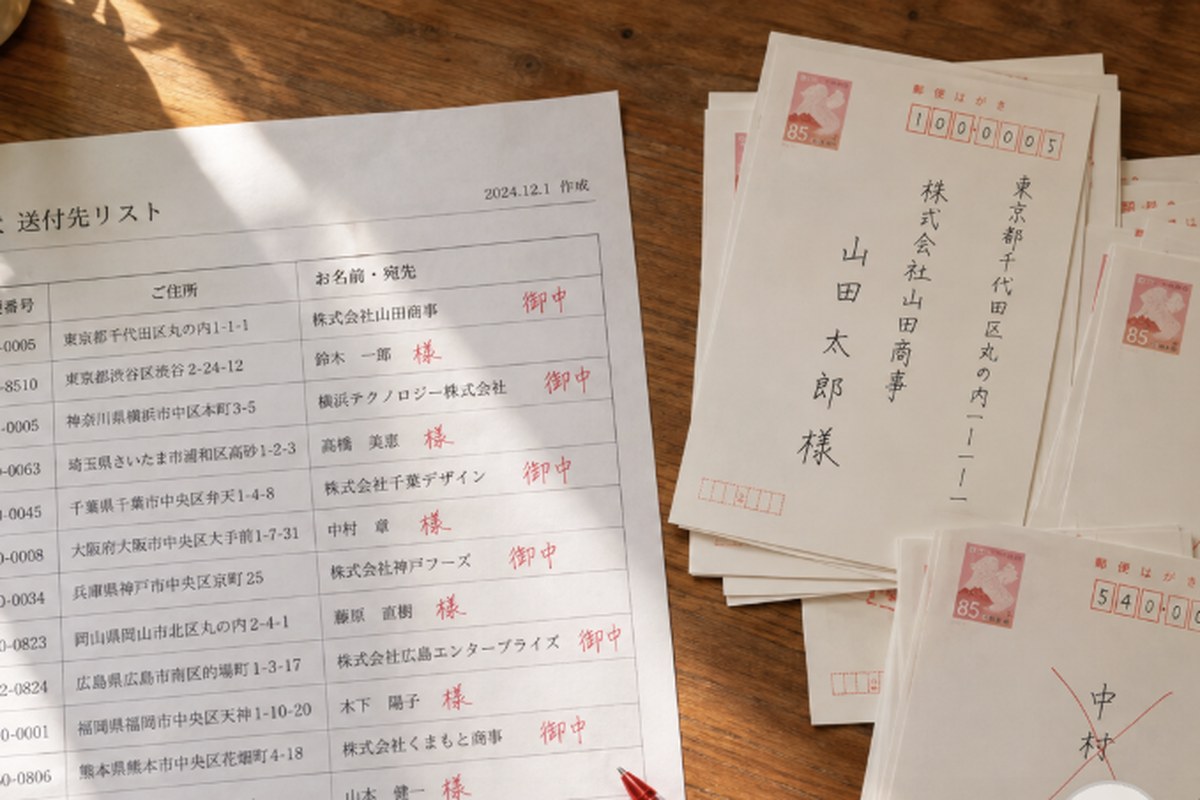 送付先リスト
2024.12.1 作成
番号 ご住所 お名前・宛先
-0005 東京都千代田区丸の内1-1-1 株式会社山田商事 御中
-8510 東京都渋谷区渋谷2-24-12 鈴木 一郎 様
-0005 神奈川県横浜市中区本町3-5 横浜テクノロジー株式会社 御中
-0063 埼玉県さいたま市浦和区高砂1-2-3 高橋 美恵 様
-0045 千葉県千葉市中央区弁天1-4-8 株式会社千葉デザイン 御中
0-0008 大阪府大阪市中央区大手前1-7-31 中村 章 様
0-0034 兵庫県神戸市中央区京町25 株式会社神戸フーズ 御中
0-0823 岡山県岡山市北区丸の内2-4-1 藤原 直樹 様
2-0824 広島県広島市南区的場町1-3-17 株式会社広島エンタープライズ 御中
0-0001 福岡県福岡市中央区天神1-10-20 木下 陽子 様
0-0806 熊本県熊本市中央区花畑町4-18 株式会社くまもと商事 御中
山本 健一 様
85
郵便はがき
100-0005
東京都千代田区丸の内一ー一ー一
株式会社山田商事
山田太郎様
85
85
郵便はがき
540-00
中村